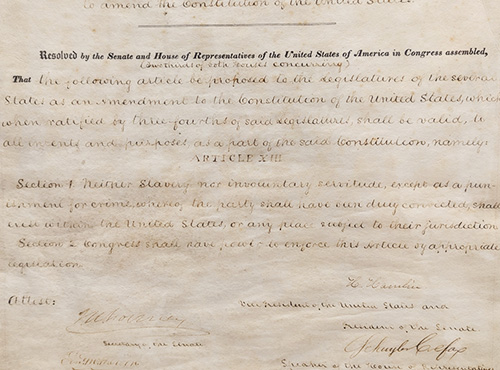 to amend the Constitution of the United States.
Resolved by the Senate and House of Representatives of the United States of America in Congress assembled,
(two thirds of both houses concurring)
That the following article be proposed to the legislatures of the several
States as an amendment to the Constitution of the United States, which
when ratified by three-fourths of said Legislatures, shall be valid, to
all intents and purposes as a part of the said Constitution, namely:
ARTICLE XIII.
Section 1. Neither Slavery nor involuntary servitude, except as a pun-
ishment for crime, whereof the party shall have been duly convicted, shall
exist within the United States, or any place subject to their jurisdiction.
Section 2. Congress shall have power to enforce this article by appropriate
legislation.
H. Hamlin
Attest:
Vice President of the United States and
President of the Senate.
Secretary of the Senate
Schuyler Colfax
Speaker of the House of Representatives